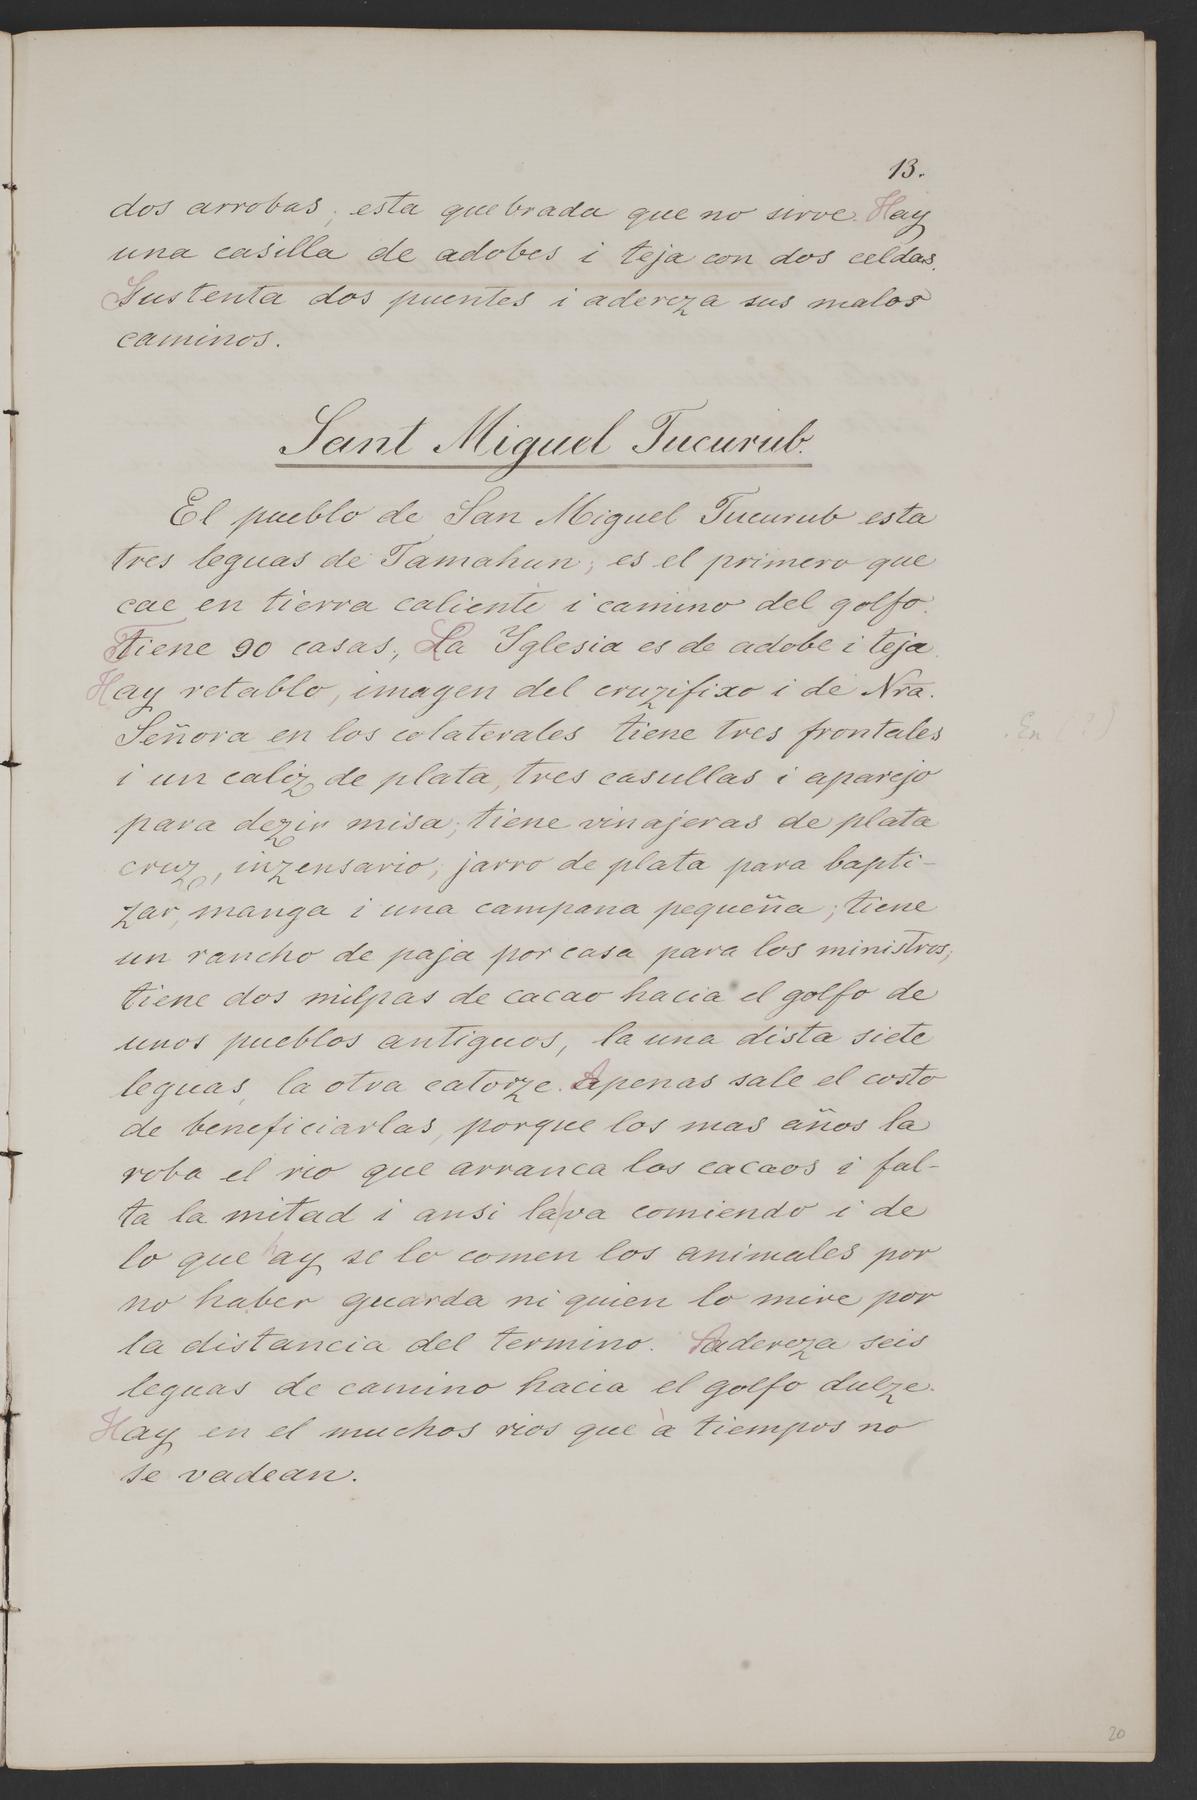 13.
dos arrobas, esta quebrada que no sirve. Hay
una casilla de adobes i teja con dos celdas.
Sustenta dos puentes i adereza sus malos
caminos.
Sant Miguel Tucurub.
El pueblo de San Miguel Tucurub esta
tres leguas de Tamahun; es el primero que
cae en tierra caliente i camino del golfo.
Tiene 90 casas; La Yglesia es de adobe i teja.
Hay retablo, imagen del cruzifixo i de Nra.
Señora en los colaterales tiene tres frontales
i un caliz de plata, tres casullas i aparejo
para dezir misa; tiene vinajeras de plata
cruz, inzensario; jarro de plata para bapti-
zar, manga i una campana pequeña; tiene
un rancho de paja por casa para los ministros;
tiene dos milpas de cacao hacia el golfo de
unos pueblos antiguos, la una dista siete
leguas, la otra catorze. Apenas sale el costo
de beneficiarlas, porque los mas años la
roba el rio que arranca los cacaos i fal-
ta la mitad i ansi la va comiendo i de
lo que hay se lo comen los animales por
no haber guarda ni quien lo mire por
la distancia del termino. Adereza seis
leguas de camino hacia el golfo dulze.
Hay en el muchos rios que à tiempos no
se vadean.
En (?)
20